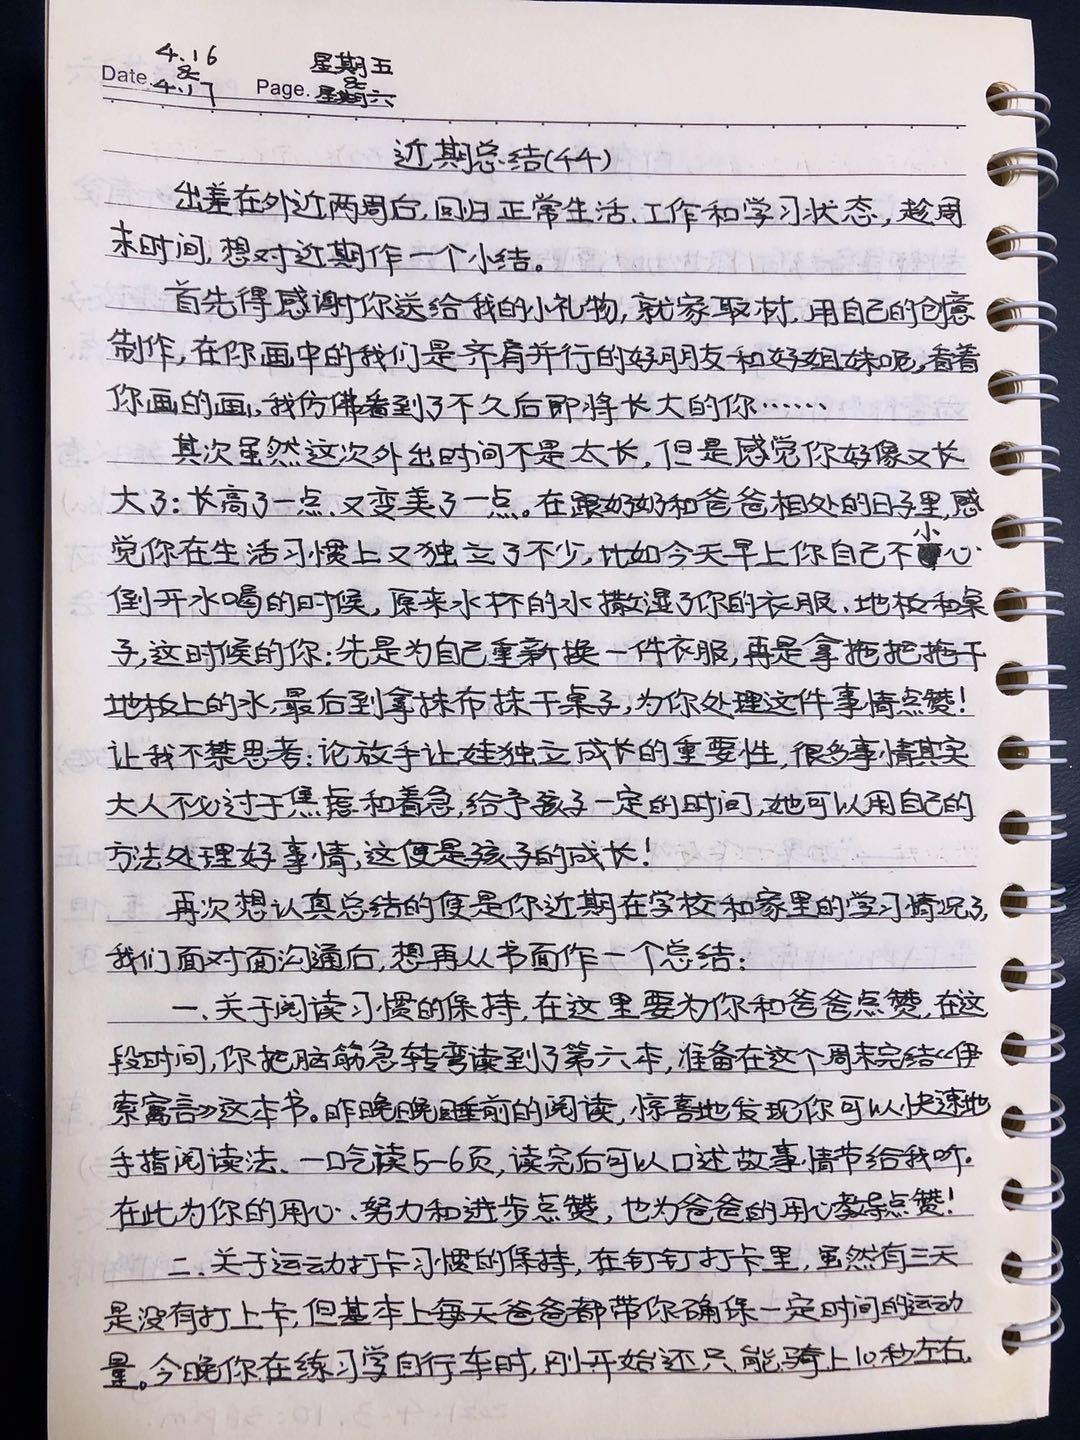 4.16 星期五
Date. & Page. &
4.17 星期六
近期总结(44)
出差在外近两周后,回归正常生活、工作和学习状态,趁周
末时间,想对近期作一个小结。
首先得感谢你送给我的小礼物,就家取材,用自己的创意
制作,在你画中的我们是齐肩并行的好朋友和好姐妹呢,看着
你画的画,我仿佛看到了不久后即将长大的你……
其次虽然这次外出时间不是太长,但是感觉你好像又长
大了:长高了一点、又变美了一点。在跟奶奶和爸爸相处的日子里,感
觉你在生活习惯上又独立了不少,比如今天早上你自己不小心
倒开水喝的时候,原来水杯的水撒湿了你的衣服、地板和桌
子,这时候的你:先是为自己重新换一件衣服,再是拿拖把拖干
地板上的水,最后到拿抹布抹干桌子,为你处理这件事情点赞!
让我不禁思考:论放手让娃独立成长的重要性,很多事情其实
大人不必过于焦虑和着急,给予孩子一定的时间,她可以用自己的
方法处理好事情,这便是孩子的成长!
再次想认真总结的便是你近期在学校和家里的学习情况了,
我们面对面沟通后,想再从书面作一个总结:
一.关于阅读习惯的保持,在这里要为你和爸爸点赞,在这
段时间,你把脑筋急转弯读到了第六本,准备在这个周末完结《伊
索寓言》这本书。昨晚晚睡前的阅读,惊喜地发现你可以快速地
手指阅读法、一口气读5-6页,读完后可以口述故事情节给我听。
在此为你的用心、努力和进步点赞,也为爸爸的用心教导点赞!
二.关于运动打卡习惯的保持,在钉钉打卡里,虽然有三天
是没有打上卡,但基本上每天爸爸都带你确保一定时间的运动
量。今晚你在练习学自行车时,刚开始还只能骑上10秒左右,